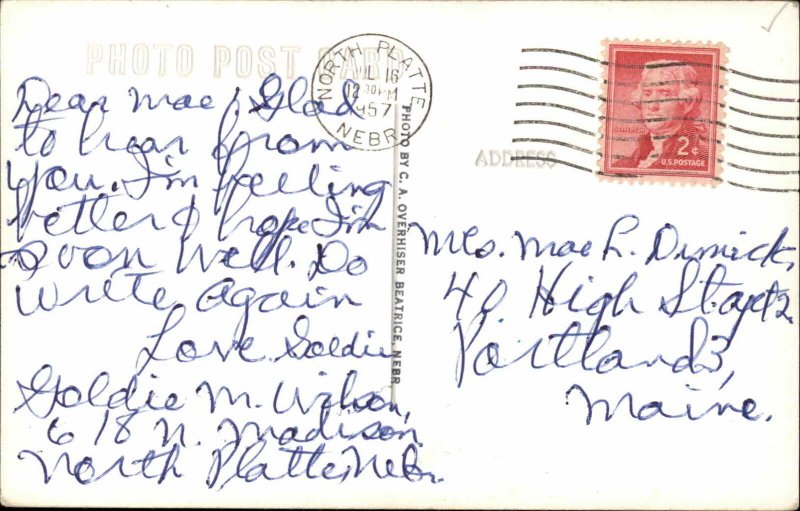 PHOTO POST CARD
NORTH PLATTE
JUL 16
12 30 PM
1957
NEBR.
JEFFERSON
2¢
U.S. POSTAGE
ADDRESS
Dear Mae, Glad
to hear from
you. I'm feeling
better & hope I'm
soon well. Do
write again
Love Goldie
Goldie M. Wilson,
618 N. Madison
North Platte, Nebr.
PHOTO BY C. A. OVERHISER BEATRICE, NEBR
Mrs. Mae L. Dimick,
40 High St. apt 2
Portland 3,
Maine.